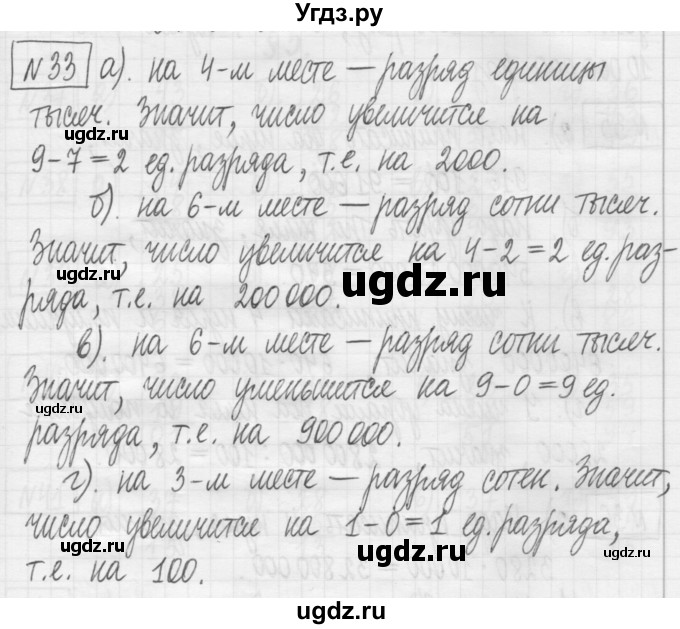 Угдз.ру
№33 а). на 4-м месте – разряд единицы
тысяч. Значит, число увеличится на
9-7=2 ед. разряда, т.е. на 2000.
б). на 6-м месте – разряд сотни тысяч.
Значит, число увеличится на 4-2=2 ед. раз-
ряда, т.е. на 200 000.
в). на 6-м месте – разряд сотни тысяч.
Значит, число уменьшится на 9-0=9 ед.
разряда, т.е. на 900 000.
г). на 3-м месте – разряд сотен. Значит,
число увеличится на 1-0=1 ед. разряда,
т.е. на 100.
ugdz.ru
ugdz.ru
ugdz.ru
ugdz.ru
ugdz.ru
ugdz.ru
ugdz.ru
ugdz.ru
ugdz.ru
ugdz.ru